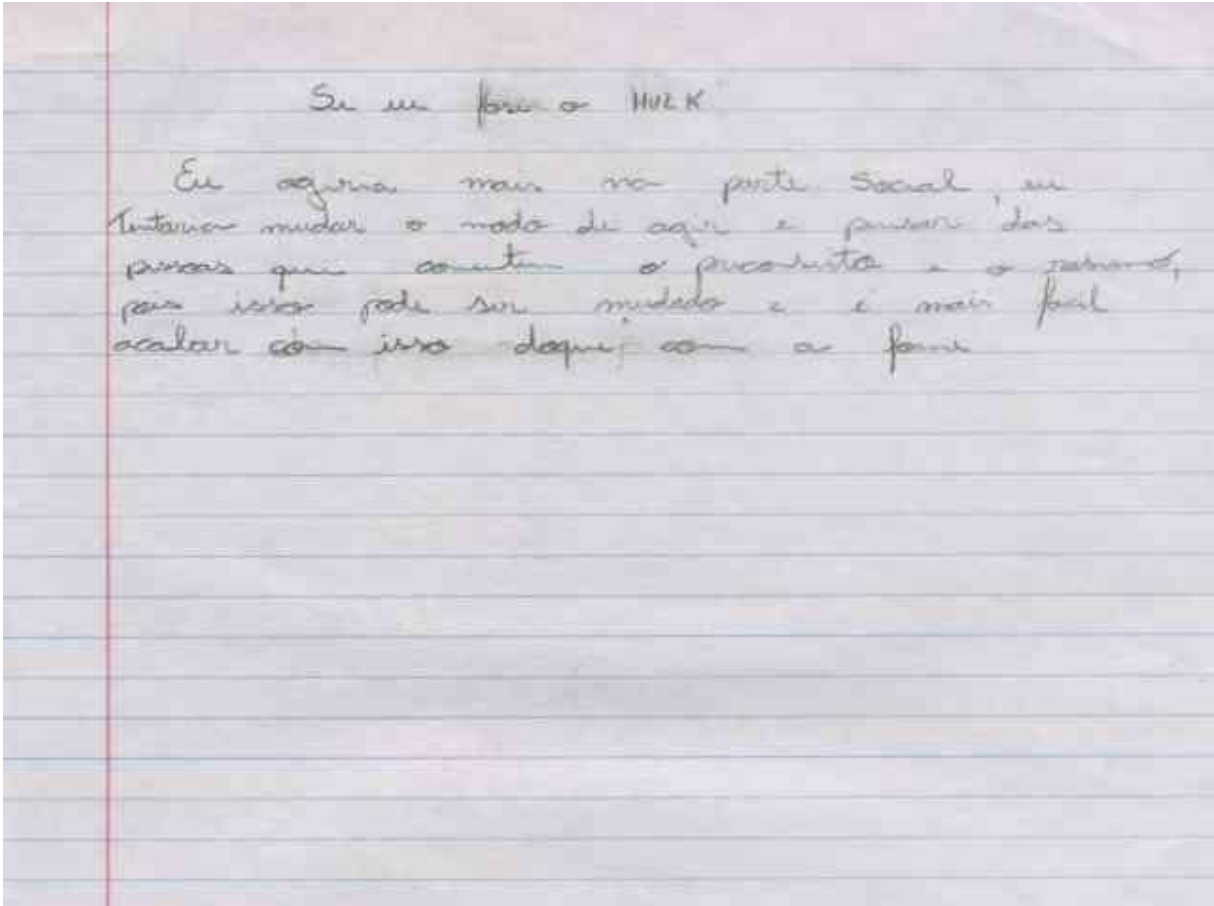 Se eu fosse o HULK
Eu agiria mais na parte Social, eu
Tentaria mudar o modo de agir e pensar das
pessoas que cometem o preconceito e o racismo,
pois isso pode ser mudado e é mais facil
acabar com isso doque com a fome